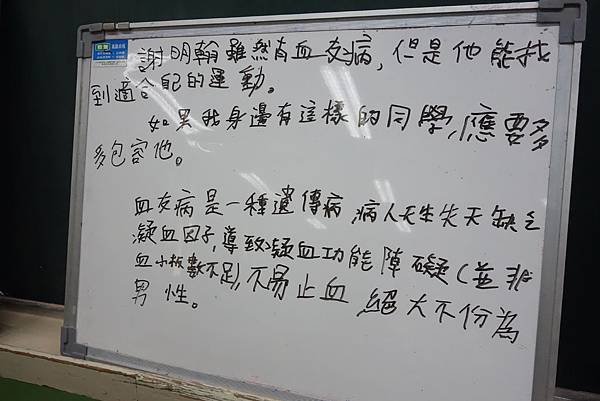 謝明翰雖然有血友病，但是他能找
到適合自己的運動。
如果我身邊有這樣的同學，應要多
多包容他。
血友病是一種遺傳病，病人天生先天缺乏
凝血因子，導致凝血功能障礙（並非
血小板數不足），不易止血，絕大不份為
男性。